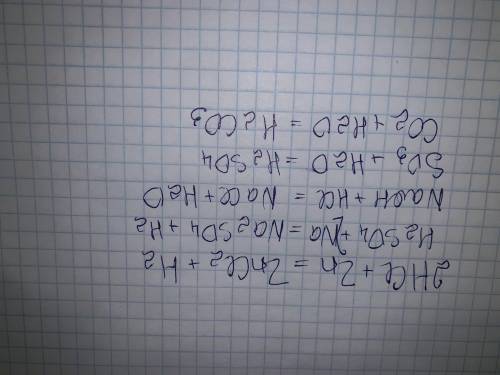 2HCl + Zn = ZnCl₂ + H₂
H₂SO₄ + 2Na = Na₂SO₄ + H₂
NaOH + HCl = NaCl + H₂O
SO₃ + H₂O = H₂SO₄
CO₂ + H₂O = H₂CO₃